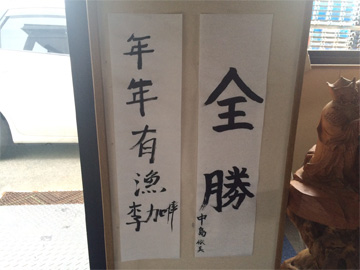 全勝
中島
年年有漁
李